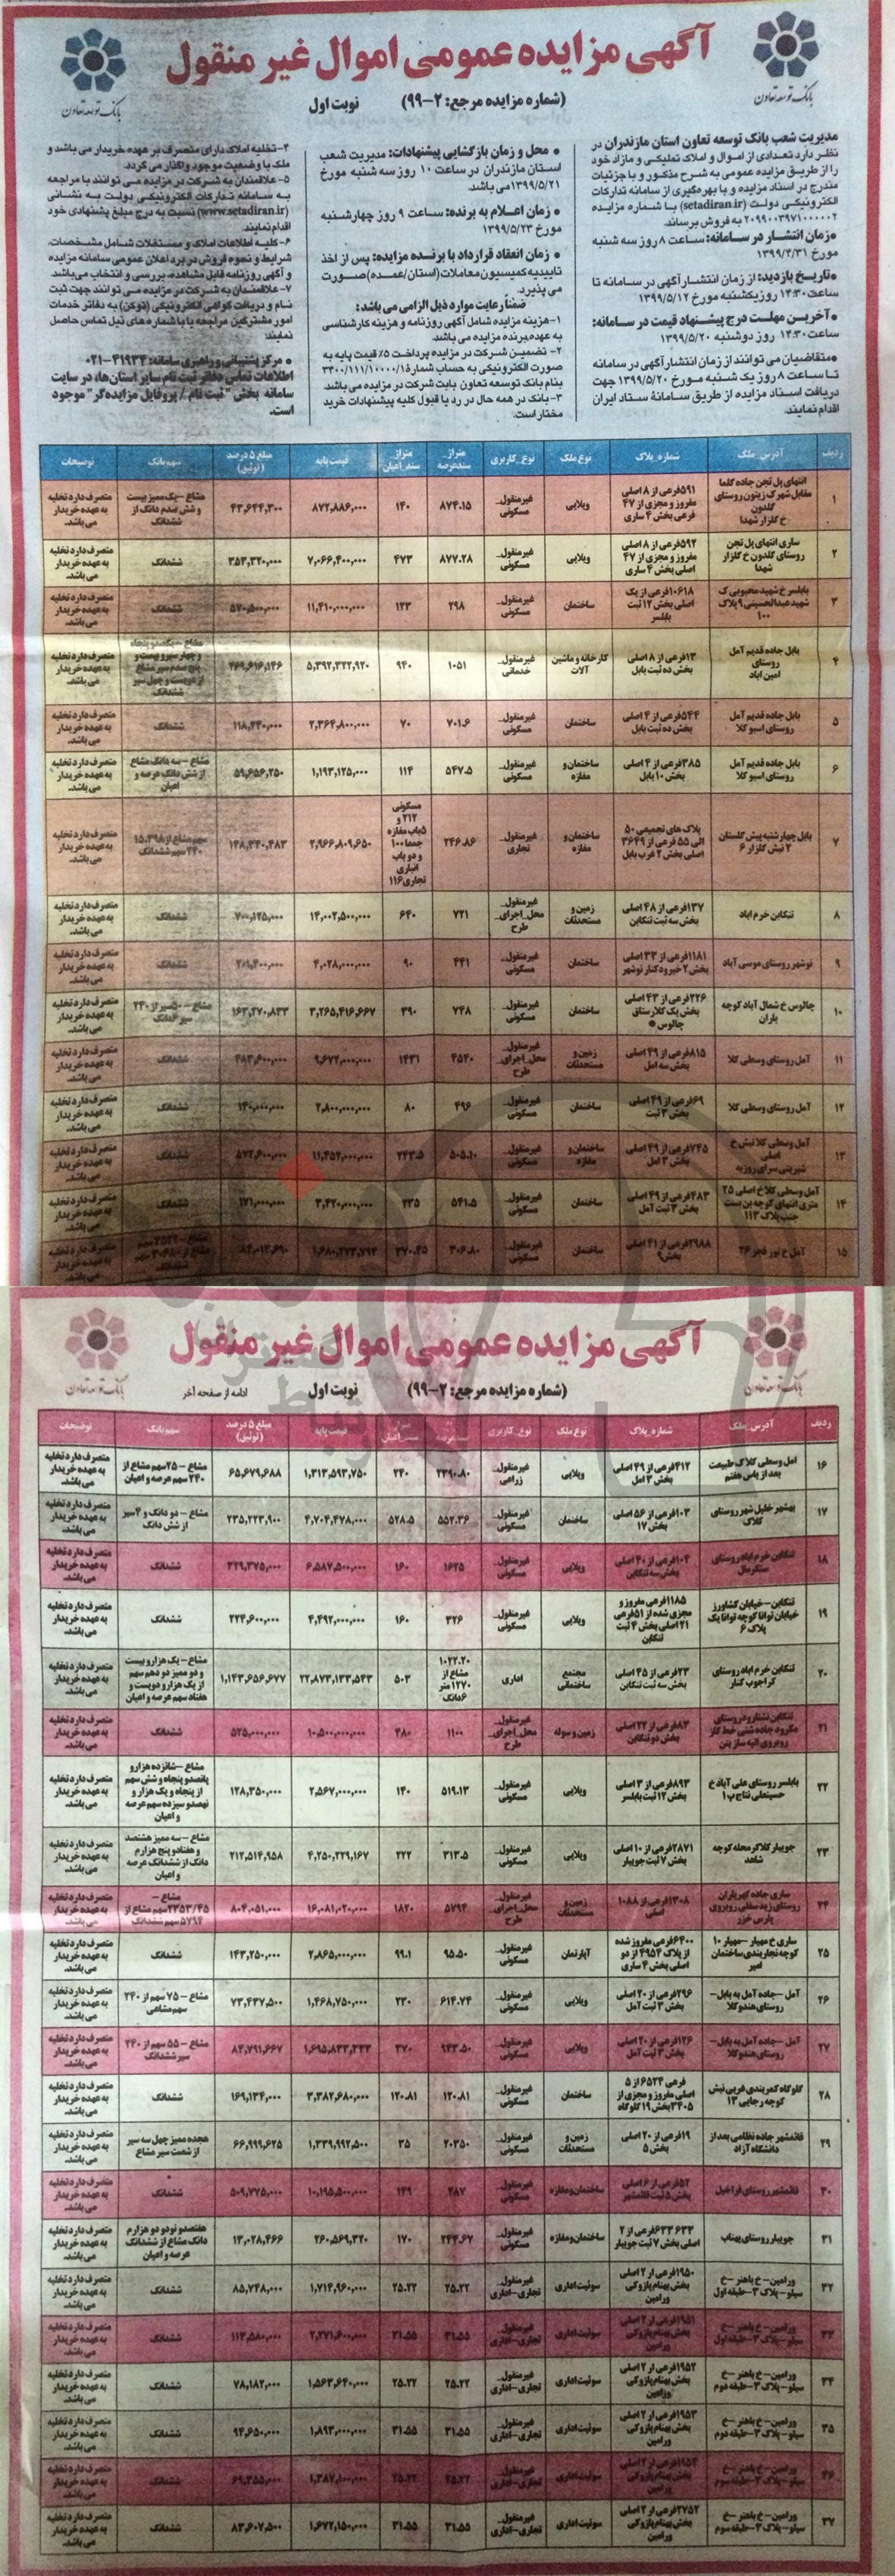 آگهی مزایده عمومی اموال غیر منقول
(شماره مزایده مرجع: ۲-۹۹) نوبت اول
بانک توسعه تعاون
بانک توسعه تعاون
مدیریت شعب بانک توسعه تعاون استان مازندران در
نظر دارد تعدادی از اموال و املاک تملیکی و مازاد خود
را از طریق مزایده عمومی به شرح مذکور و با جزئیات
مندرج در اسناد مزایده و با بهره‌گیری از سامانه تدارکات
الکترونیکی دولت (setadiran.ir) با شماره مزایده
۲۰۹۹۰۰۳۹۷۱۰۰۰۰۰۲ به فروش برساند.
•زمان انتشار در سامانه: ساعت ۸ روز سه شنبه
مورخ ۱۳۹۹/۴/۳۱
•تاریخ بازدید: از زمان انتشار آگهی در سامانه تا
ساعت ۱۴:۳۰ روز یکشنبه مورخ ۱۳۹۹/۵/۱۲
•آخرین مهلت درج پیشنهاد قیمت در سامانه:
ساعت ۱۴:۳۰ روز دوشنبه ۱۳۹۹/۵/۲۰
•متقاضیان می توانند از زمان انتشار آگهی در سامانه
تا ساعت ۸ روز یک شنبه مورخ ۱۳۹۹/۵/۲۰ جهت
دریافت اسناد مزایده از طریق سامانه ستاد ایران
اقدام نمایند.
• محل و زمان بازگشایی پیشنهادات: مدیریت شعب
استان مازندران در ساعت ۱۰ روز سه شنبه مورخ
۱۳۹۹/۵/۲۱ می باشد.
• زمان اعلام به برنده: ساعت ۹ روز چهارشنبه
مورخ ۱۳۹۹/۵/۲۳
• زمان انعقاد قرارداد با برنده مزایده: پس از اخذ
تاییدیه کمیسیون معاملات (استان/عمده) صورت
می پذیرد.
ضمناً رعایت موارد ذیل الزامی می باشد:
۱-هزینه مزایده شامل آگهی روزنامه و هزینه کارشناسی
به عهده برنده مزایده می باشد.
۲- تضمین شرکت در مزایده پرداخت ۵٪ قیمت پایه به
صورت الکترونیکی به حساب شماره ۳۴۰۰/۱۱۱/۱۰۰۰۰/۱
بنام بانک توسعه تعاون بابت شرکت در مزایده می باشد.
۳-بانک در همه حال در رد یا قبول کلیه پیشنهادات خرید
مختار است.
۴-تخلیه املاک دارای متصرف بر عهده خریدار می باشد و
ملک با وضعیت موجود واگذار می گردد.
۵- علاقمندان به شرکت در مزایده می توانند با مراجعه
به سامانه تدارکات الکترونیکی دولت به نشانی
(www.setadiran.ir) نسبت به درج مبلغ پیشنهادی خود
اقدام نمایند.
۶- کلیه اطلاعات املاک و مستغلات شامل مشخصات،
شرایط و نحوه فروش در برد اعلان عمومی سامانه مزایده
و آگهی روزنامه قابل مشاهده، بررسی و انتخاب می‌باشد.
۷-علاقمندان به شرکت در مزایده می توانند جهت ثبت
نام و دریافت گواهی الکترونیکی (توکن) به دفاتر خدمات
امور مشترکین مراجعه یا با شماره های ذیل تماس حاصل
نمایند:
• مرکز پشتیبانی و راهبری سامانه: ۴۱۹۳۴-۰۲۱
اطلاعات تماس دفاتر ثبت نام سایر استان‌ها، در سایت
سامانه بخش "ثبت نام / پروفایل مزایده‌گر" موجود
است.
ردیف آدرس_ملک شماره_پلاک نوع ملک نوع_کاربری متراژ_سند عرصه متراژ_سند_اعیان قیمت پایه مبلغ ۵ درصد (توثیق) سهم بانک توضیحات
۱ ویلایی غیرمنقول_مسکونی ۸۷۴.۱۵ ۱۴۰ ۸۷۲,۸۸۶,۰۰۰ ۴۳,۶۴۴,۳۰۰ متصرف دارد تخلیه به عهده خریدار می باشد.
۲ ساری انتهای پل تجن روستای گلدون خ گلزار شهدا ۵۹۲فرعی از ۸ اصلی مفروز و مجزی از ۴۷ اصلی بخش ۴ ساری ویلایی غیرمنقول_مسکونی ۸۷۷.۲۸ ۴۷۳ ۷,۰۶۶,۴۰۰,۰۰۰ ۳۵۳,۳۲۰,۰۰۰ ششدانک متصرف دارد تخلیه به عهده خریدار می باشد.
۳ ساختمان غیرمنقول_مسکونی ۲۹۸ ۱۲۳ ۱۱,۴۱۰,۰۰۰,۰۰۰ ۵۷۰,۵۰۰,۰۰۰ ششدانک متصرف دارد تخلیه به عهده خریدار می باشد.
۴ بابل جاده قدیم آمل روستای امین اباد ۱۳فرعی از ۸ اصلی بخش ده ثبت بابل کارخانه و ماشین آلات غیرمنقول_خدماتی ۱۰۵۱ ۹۴۰ ۵,۳۹۲,۳۲۲,۹۲۰ ۲۶۹,۶۱۶,۱۴۶ متصرف دارد تخلیه به عهده خریدار می باشد.
۵ بابل جاده قدیم آمل روستای اسبو کلا ۵۴۴فرعی از ۴ اصلی بخش ده ثبت بابل ساختمان غیرمنقول_مسکونی ۷۰۱.۶ ۷۰ ۲,۳۶۴,۸۰۰,۰۰۰ ششدانک متصرف دارد تخلیه به عهده خریدار می باشد.
۶ بابل جاده قدیم آمل روستای اسبو کلا ۳۸۵فرعی از ۴ اصلی بخش ۱۰ بابل ساختمان و مغازه غیرمنقول_مسکونی ۵۴۷.۵ ۱۱۴ ۱,۱۹۳,۱۲۵,۰۰۰ ۵۹,۶۵۶,۲۵۰ مشاع - سه دانگ مشاع از شش دانگ عرصه و اعیان متصرف دارد تخلیه به عهده خریدار می باشد.
۷ ساختمان و مغازه غیرمنقول_تجاری ۲۴۶.۸۶ ۲,۹۶۶,۸۰۹,۶۵۰ ۱۴۸,۳۴۰,۴۸۳ متصرف دارد تخلیه به عهده خریدار می باشد.
۸ تنکابن خرم اباد ۱۳۷فرعی از ۴۸ اصلی بخش سه ثبت تنکابن زمین و مستحدثات غیرمنقول_محل_اجرای_طرح ۷۲۱ ۶۴۰ ۱۴,۰۰۲,۵۰۰,۰۰۰ ۷۰۰,۱۲۵,۰۰۰ ششدانک متصرف دارد تخلیه به عهده خریدار می باشد.
۹ نوشهر روستای موسی آباد ساختمان غیرمنقول_مسکونی ۴۴۱ ۹۰ ۴,۰۲۸,۰۰۰,۰۰۰ ۲۰۱,۴۰۰,۰۰۰ ششدانک متصرف دارد تخلیه به عهده خریدار می باشد.
۱۰ چالوس خ شمال آباد کوچه باران ۲۲۶فرعی از ۴۳ اصلی بخش یک کلارستاق چالوس ساختمان غیرمنقول_مسکونی ۷۴۸ ۳۹۰ ۳,۲۶۵,۴۱۶,۶۶۷ ۱۶۳,۲۷۰,۸۳۳ متصرف دارد تخلیه به عهده خریدار می باشد.
۱۱ آمل روستای وسطی کلا ۸۱۵فرعی از ۴۹ اصلی بخش سه امل زمین و مستحدثات غیرمنقول_محل_اجرای_طرح ۴۵۴۰ ۱۴۳۱ ۹,۶۷۲,۰۰۰,۰۰۰ ۴۸۳,۶۰۰,۰۰۰ ششدانک متصرف دارد تخلیه به عهده خریدار می باشد.
۱۲ آمل روستای وسطی کلا ۶۹فرعی از ۴۹ اصلی بخش ۳ ثبت ساختمان غیرمنقول_مسکونی ۴۹۶ ۸۰ ۲,۸۰۰,۰۰۰,۰۰۰ ۱۴۰,۰۰۰,۰۰۰ ششدانک متصرف دارد تخلیه به عهده خریدار می باشد.
۱۳ ۷۴۵فرعی از ۴۹ اصلی بخش ۳ امل ساختمان و مغازه غیرمنقول_مسکونی ۵۰۵.۱۰ ۲۴۳.۵ ۱۱,۴۵۲,۰۰۰,۰۰۰ ۵۷۲,۶۰۰,۰۰۰ ششدانک متصرف دارد تخلیه به عهده خریدار می باشد.
۱۴ ۴۸۳فرعی از ۴۹ اصلی بخش ۳ ثبت آمل ساختمان غیرمنقول_مسکونی ۵۴۱.۵ ۲۳۵ ۳,۴۲۰,۰۰۰,۰۰۰ ۱۷۱,۰۰۰,۰۰۰ ششدانک متصرف دارد تخلیه به عهده خریدار می باشد.
۱۵ آمل خ نور فجر ۲۶ ساختمان غیرمنقول_مسکونی ۳۰۶.۸۰ ۳۷۰.۴۵ متصرف دارد تخلیه به عهده خریدار می باشد.
آگهی مزایده عمومی اموال غیر منقول
(شماره مزایده مرجع: ۲-۹۹) نوبت اول ادامه از صفحه آخر
ردیف آدرس_ملک شماره_پلاک نوع ملک نوع_کاربری قیمت پایه مبلغ ۵ درصد (توثیق) سهم بانک توضیحات
۱۶ ۴۱۲فرعی از ۴۹ اصلی بخش ۳ امل ویلایی غیرمنقول_زراعی ۲۳۹۰.۸۰ ۲۴۰ ۱,۳۱۳,۵۹۳,۷۵۰ ۶۵,۶۷۹,۶۸۸ مشاع - ۲۵سهم مشاع از ۲۴۰ سهم عرصه و اعیان متصرف دارد تخلیه به عهده خریدار می باشد.
۱۷ بهشهر خلیل شهر روستای کلاک ۱۰۳فرعی از ۵۶ اصلی بخش ۱۷ ساختمان غیرمنقول_مسکونی ۵۵۲.۳۶ ۵۲۸.۵ ۴,۷۰۴,۴۷۸,۰۰۰ ۲۳۵,۲۲۳,۹۰۰ مشاع - دو دانگ و ۴ سیر از شش دانگ متصرف دارد تخلیه به عهده خریدار می باشد.
۱۸ ۱۰۴فرعی از ۴۰ اصلی بخش سه تنکابن ویلایی غیرمنقول_مسکونی ۱۶۲۵ ۱۶۰ ۶,۵۸۷,۵۰۰,۰۰۰ ۳۲۹,۳۷۵,۰۰۰ ششدانک متصرف دارد تخلیه به عهده خریدار می باشد.
۱۹ تنکابن-خیابان کشاورز خیابان توانا کوچه توانا یک پلاک ۶ ۱۱۸۵فرعی مفروز و مجزی شده از ۵۱فرعی ۲۱ اصلی بخش ۴ ثبت تنکابن ویلایی غیرمنقول_مسکونی ۳۲۶ ۱۶۰ ۴,۴۹۲,۰۰۰,۰۰۰ ۲۲۴,۶۰۰,۰۰۰ ششدانک متصرف دارد تخلیه به عهده خریدار می باشد.
۲۰ تنکابن خرم اباد روستای کراجوب کنار ۲۳فرعی از ۴۵ اصلی بخش سه ثبت تنکابن مجتمع ساختمانی اداری ۱۰۲۲.۲۰ مشاع از ۱۲۷۰ متر ۶دانک ۵۰۳ ۲۲,۸۷۳,۱۳۳,۵۴۳ ۱,۱۴۳,۶۵۶,۶۷۷ مشاع - یک هزار و بیست و دو ممیز دو دهم سهم از یک هزار و دویست و هفتاد سهم عرصه و اعیان متصرف دارد تخلیه به عهده خریدار می باشد.
۲۱ ۸۳فرعی از ۲۷ اصلی بخش دو تنکابن زمین و سوله غیرمنقول_محل_اجرای_طرح ۱۱۰۰ ۴۸۰ ۱۰,۵۰۰,۰۰۰,۰۰۰ ۵۲۵,۰۰۰,۰۰۰ ششدانک متصرف دارد تخلیه به عهده خریدار می باشد.
۲۲ بابلسر روستای علی آباد خ حسینعلی نتاج پ۱ ۸۹۳فرعی از ۳ اصلی بخش ۱۲ ثبت بابلسر ویلایی غیرمنقول_مسکونی ۵۱۹.۱۳ ۱۴۰ ۲,۵۶۷,۰۰۰,۰۰۰ ۱۲۸,۳۵۰,۰۰۰ مشاع - شانزده هزار و پانصد و پنجاه و شش سهم از پنجاه و یک هزار و نهصد و سیزده سهم عرصه و اعیان متصرف دارد تخلیه به عهده خریدار می باشد.
۲۳ جویبار کلاگر محله کوچه شاهد ۲۸۷۱فرعی از ۱۰ اصلی بخش ۷ ثبت جویبار ویلایی غیرمنقول_مسکونی ۳۱۳.۵ ۲۲۲ ۴,۲۵۰,۲۲۹,۱۶۷ ۲۱۲,۵۱۴,۹۵۸ مشاع - سه ممیز هشتصد و هفتاد و پنج هزارم دانگ از ششدانگ عرصه و اعیان متصرف دارد تخلیه به عهده خریدار می باشد.
۲۴ ۱۳۰۸فرعی از ۱۰۸۸ اصلی زمین و مستحدثات غیرمنقول_محل_اجرای_طرح ۵۷۹۴ ۱۸۲۰ ۱۶,۰۸۱,۰۲۰,۰۰۰ ۸۰۴,۰۵۱,۰۰۰ مشاع - ۲۳۵۳/۴۵سهم مشاع از ۵۷۹۴ سهم ششدانک متصرف دارد تخلیه به عهده خریدار می باشد.
۲۵ ساری خ مهیار - مهیار ۱۰ کوچه نجاربندی ساختمان امیر ۶۴۰۰فرعی مفروز شده از پلاک ۴۹۵۴ از دو اصلی بخش ۴ ساری آپارتمان غیرمنقول_مسکونی ۹۵.۵۰ ۹۹.۱ ۲,۸۶۵,۰۰۰,۰۰۰ ۱۴۳,۲۵۰,۰۰۰ ششدانک متصرف دارد تخلیه به عهده خریدار می باشد.
۲۶ آمل -جاده آمل به بابل- روستای هندوکلا ۲۹۶فرعی از ۲۰ اصلی بخش ۳ ثبت آمل ویلایی غیرمنقول_مسکونی ۶۱۴.۷۴ ۲۳۰ ۱,۴۶۸,۷۵۰,۰۰۰ ۷۳,۴۳۷,۵۰۰ مشاع - ۷۵ سهم از ۲۴۰ سهم مشاعی متصرف دارد تخلیه به عهده خریدار می باشد.
۲۷ آمل -جاده آمل به بابل- روستای هندوکلا ۱۲۶فرعی از ۲۰ اصلی بخش ۳ ثبت آمل ویلایی غیرمنقول_مسکونی ۹۴۳.۵۰ ۳۷۰ ۱,۶۹۵,۸۳۳,۳۳۳ ۸۴,۷۹۱,۶۶۷ مشاع - ۵۵ سهم از ۲۴۰ سیر ششدانک متصرف دارد تخلیه به عهده خریدار می باشد.
۲۸ گلوگاه کمربندی غربی نبش کوچه رجایی ۱۳ فرعی ۶۵۲۴ از ۵ اصلی مفروز و مجزی از ۳۴۰۵ بخش ۱۹ گلوگاه ساختمان غیرمنقول_مسکونی ۱۲۰.۸۱ ۱۲۰.۸۱ ۳,۳۸۲,۶۸۰,۰۰۰ ۱۶۹,۱۳۴,۰۰۰ ششدانک متصرف دارد تخلیه به عهده خریدار می باشد.
۲۹ قائمشهر جاده نظامی بعد از دانشگاه آزاد ۱۹فرعی از ۲۰ اصلی بخش ۵ زمین و مستحدثات غیرمنقول_مسکونی ۲۰۳۵۰ ۳۵ ۱,۳۳۹,۹۹۲,۵۰۰ ۶۶,۹۹۹,۶۲۵ هجده ممیز چهل سه سیر از شصت سیر مشاع متصرف دارد تخلیه به عهده خریدار می باشد.
۳۰ قائمشهر روستای قراخیل ۵۲فرعی از ۶ اصلی بخش ۵ ثبت قائمشهر ساختمان و مغازه غیرمنقول_مسکونی ۲۸۷ ۱۴۹ ۱۰,۱۹۵,۵۰۰,۰۰۰ ۵۰۹,۷۷۵,۰۰۰ ششدانک متصرف دارد تخلیه به عهده خریدار می باشد.
۳۱ جویبار روستای پهناب ساختمان و مغازه غیرمنقول_مسکونی ۲۴۴.۶۷ ۱۷۰ ۲۶۰,۵۶۹,۳۲۰ ۱۳,۰۲۸,۴۶۶ هفتصد و نود دو هزارم دانگ مشاع از ششدانگ عرصه و اعیان متصرف دارد تخلیه به عهده خریدار می باشد.
۳۲ ورامین- خ باهنر -خ سیلو- پلاک ۳-طبقه اول ۱۹۵۰فرعی از ۲ اصلی بخش بهنام پازوکی ورامین سوئیت اداری غیرمنقول_تجاری-اداری ۲۵.۲۲ ۲۵.۲۲ ۱,۷۱۴,۹۶۰,۰۰۰ ۸۵,۷۴۸,۰۰۰ ششدانک متصرف دارد تخلیه به عهده خریدار می باشد.
۳۳ ورامین- خ باهنر -خ سیلو- پلاک ۳-طبقه اول ۱۹۵۱فرعی از ۲ اصلی بخش بهنام پازوکی ورامین سوئیت اداری غیرمنقول_تجاری-اداری ۳۱.۵۵ ۳۱.۵۵ ۲,۲۷۱,۶۰۰,۰۰۰ ۱۱۳,۵۸۰,۰۰۰ ششدانک متصرف دارد تخلیه به عهده خریدار می باشد.
۳۴ ورامین- خ باهنر -خ سیلو- پلاک ۳-طبقه دوم ۱۹۵۲فرعی از ۲ اصلی بخش بهنام پازوکی ورامین سوئیت اداری غیرمنقول_تجاری-اداری ۲۵.۲۲ ۲۵.۲۲ ۱,۵۶۳,۶۴۰,۰۰۰ ۷۸,۱۸۲,۰۰۰ ششدانک متصرف دارد تخلیه به عهده خریدار می باشد.
۳۵ ورامین- خ باهنر -خ سیلو- پلاک ۳-طبقه دوم ۱۹۵۳فرعی از ۲ اصلی بخش بهنام پازوکی ورامین سوئیت اداری غیرمنقول_تجاری-اداری ۳۱.۵۵ ۳۱.۵۵ ۱,۸۹۳,۰۰۰,۰۰۰ ۹۴,۶۵۰,۰۰۰ ششدانک متصرف دارد تخلیه به عهده خریدار می باشد.
۳۶ ورامین- خ باهنر -خ سیلو- پلاک ۳-طبقه سوم ۱۹۵۴فرعی از ۲ اصلی بخش بهنام پازوکی ورامین سوئیت اداری غیرمنقول_تجاری-اداری ۲۵.۲۲ ۲۵.۲۲ ۱,۳۸۷,۱۰۰,۰۰۰ ۶۹,۳۵۵,۰۰۰ ششدانک متصرف دارد تخلیه به عهده خریدار می باشد.
۳۷ ورامین- خ باهنر -خ سیلو- پلاک ۳-طبقه سوم ۲۷۵۲فرعی از ۲ اصلی بخش بهنام پازوکی ورامین سوئیت اداری غیرمنقول_تجاری-اداری ۳۱.۵۵ ۳۱.۵۵ ۱,۶۷۲,۱۵۰,۰۰۰ ۸۳,۶۰۷,۵۰۰ ششدانک متصرف دارد تخلیه به عهده خریدار می باشد.